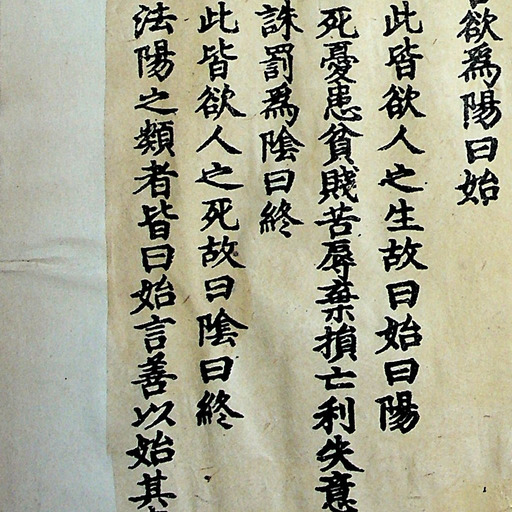 欲為陽曰始
此皆欲人之生故曰始曰陽
死憂患貧賤苦辱棄損亡利失意
誅罰為陰曰終
此皆欲人之死故曰陰曰終
法陽之類者皆曰始言善以始其